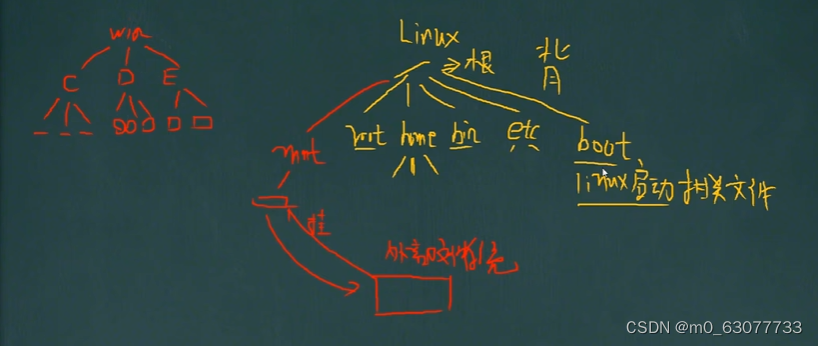 win
C D E
Linux
/ → 根
背
mnt root home bin etc boot
linux启动相关文件
挂
外部文件系统
CSDN @m0_63077733